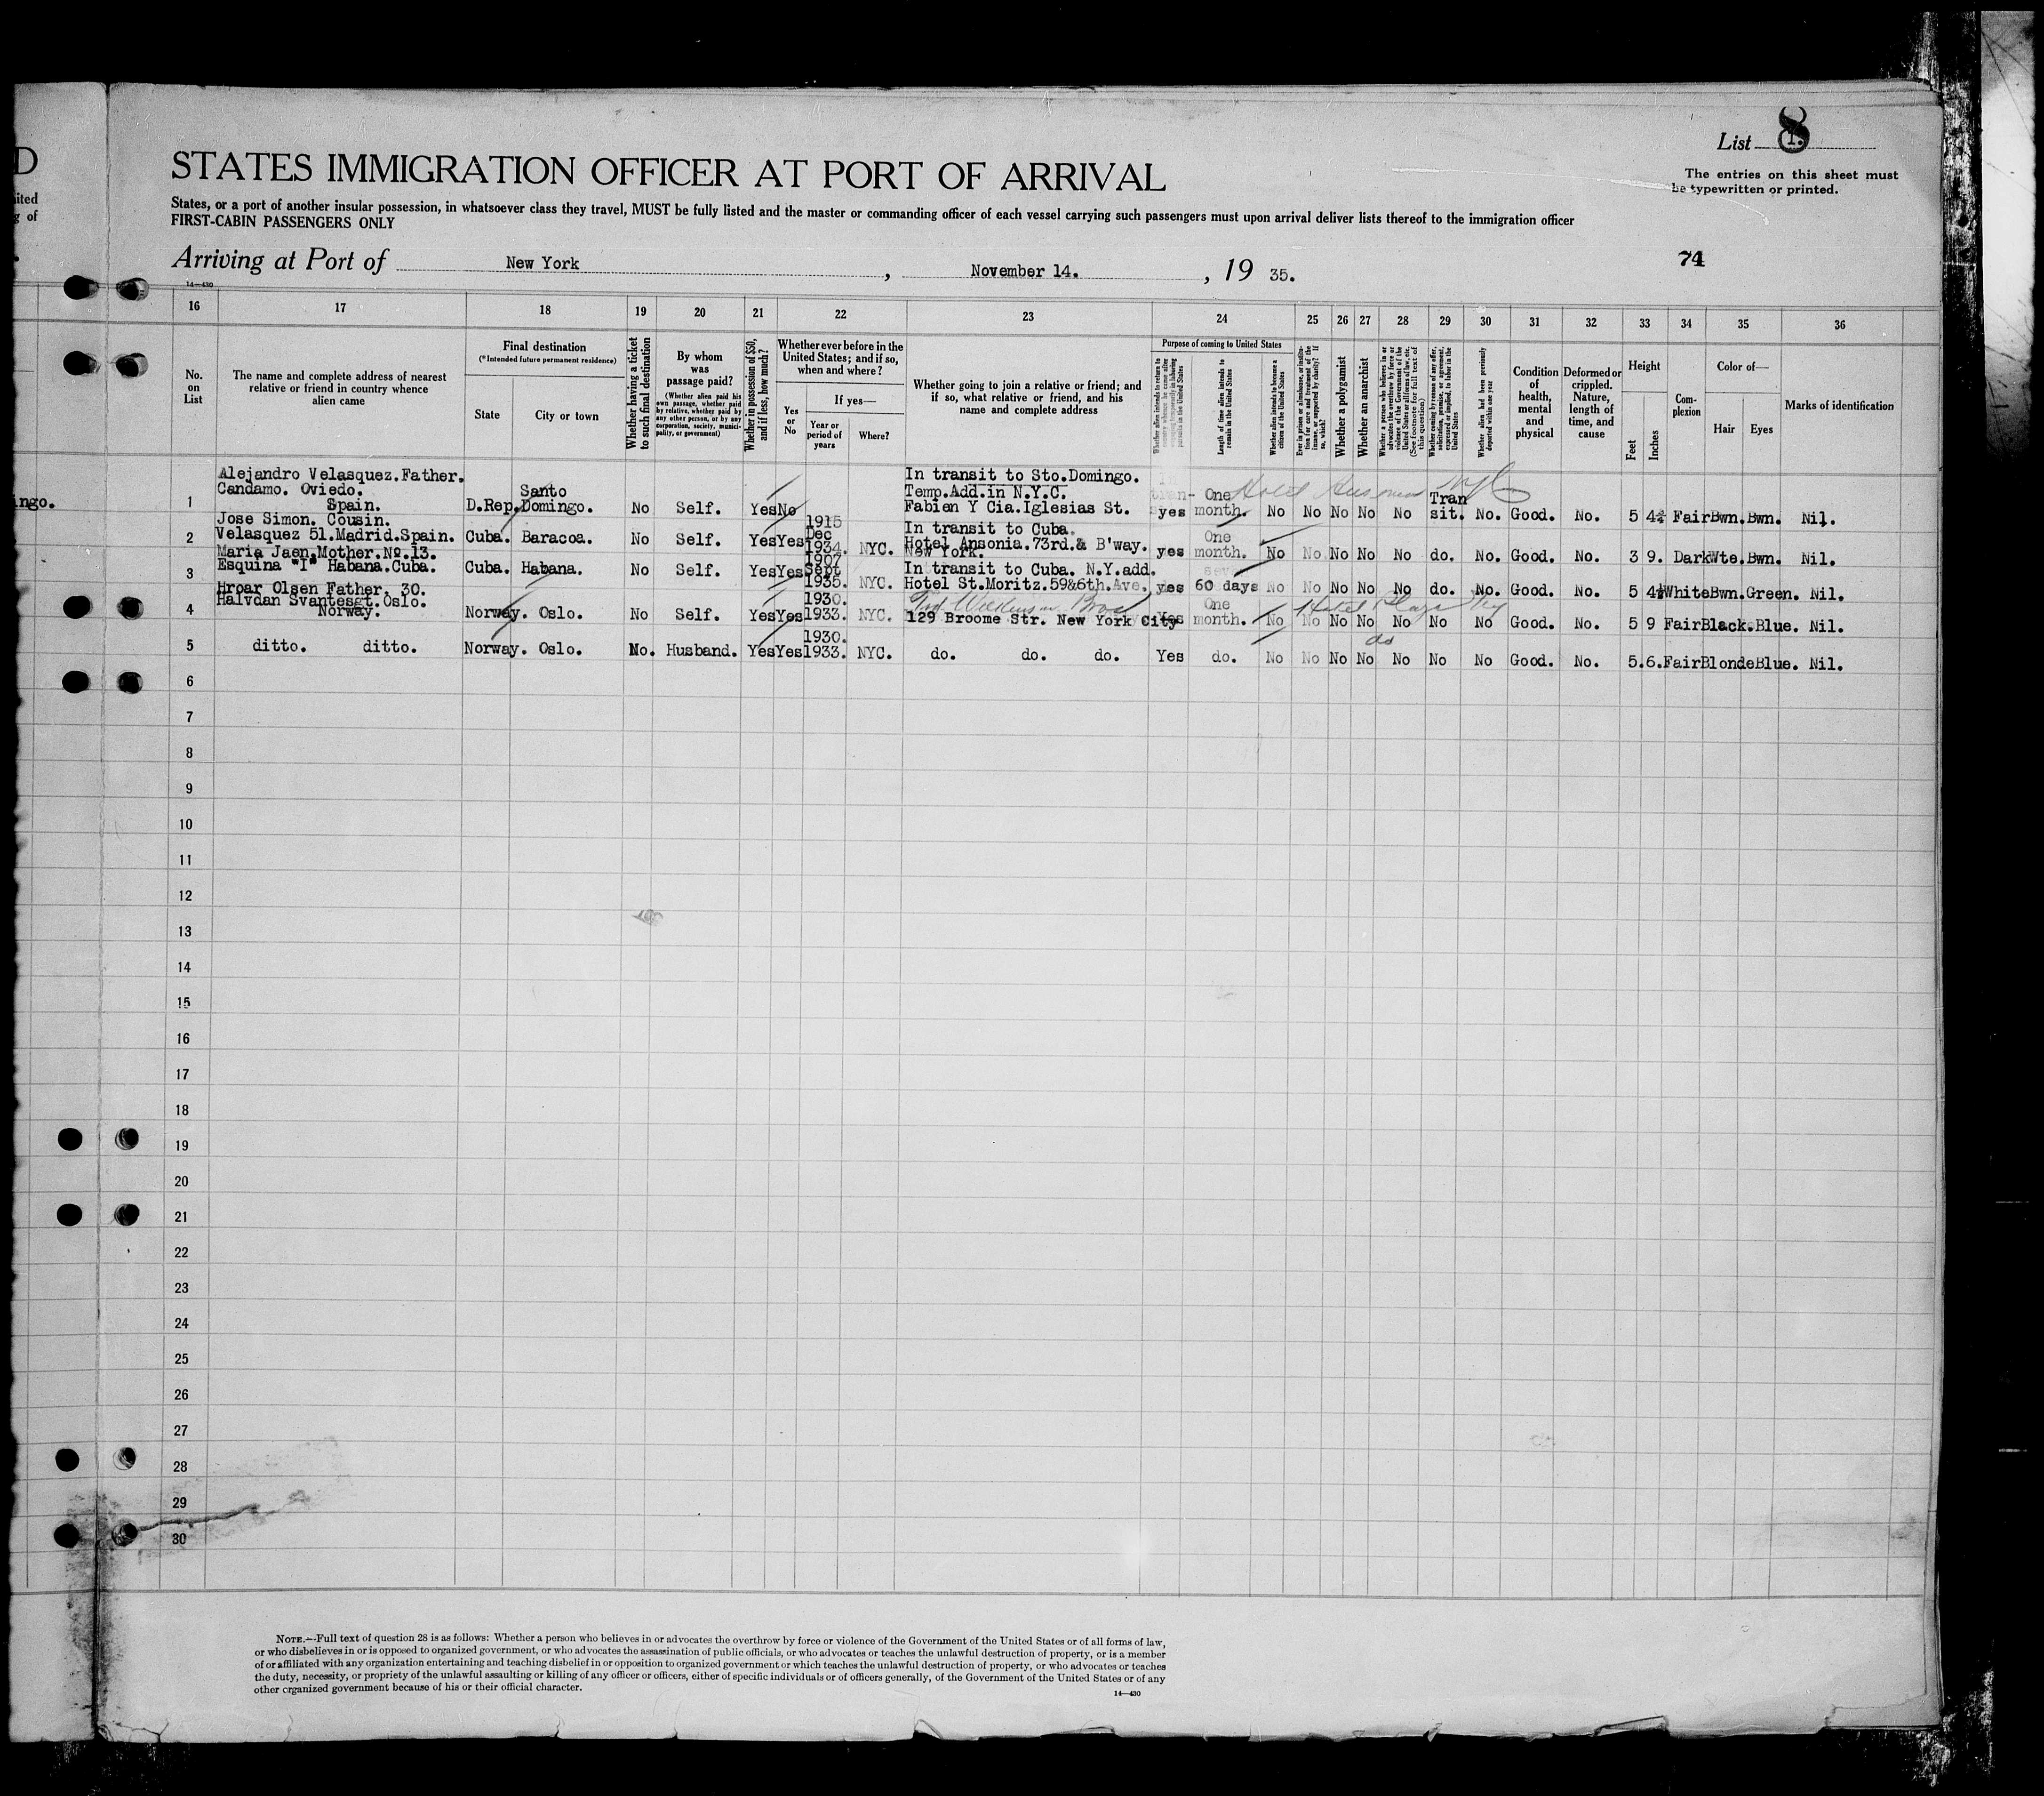 D
ited
g of
ingo.
List 8
The entries on this sheet must
be typewritten or printed.
STATES IMMIGRATION OFFICER AT PORT OF ARRIVAL
States, or a port of another insular possession, in whatsoever class they travel, MUST be fully listed and the master or commanding officer of each vessel carrying such passengers must upon arrival deliver lists thereof to the immigration officer
FIRST-CABIN PASSENGERS ONLY
Arriving at Port of New York, November 14., 19 35.
74
14—430
16 17 18 19 20 21 22 23 24 25 26 27 28 29 30 31 32 33 34 35 36
No. on List
The name and complete address of nearest relative or friend in country whence alien came
Final destination
(*Intended future permanent residence)
State
City or town
Whether having a ticket to such final destination
By whom was passage paid?
(Whether alien paid his own passage, whether paid by relative, whether paid by any other person, or by any corporation, society, municipality, or government)
Whether in possession of $50, and if less, how much?
Whether ever before in the United States; and if so, when and where?
Yes or No
If yes—
Year or period of years
Where?
Whether going to join a relative or friend; and if so, what relative or friend, and his name and complete address
Purpose of coming to United States
Whether alien intends to return to country whence he came after engaging temporarily in laboring pursuits in the United States
Length of time alien intends to remain in the United States
Whether alien intends to become a citizen of the United States
Ever in prison or almshouse, or institution for care and treatment of the insane, or supported by charity? If so, which?
Whether a polygamist
Whether an anarchist
Whether a person who believes in or advocates the overthrow by force or violence of the Government of the United States or all forms of law, etc. (See footnote for full text of this question)
Whether coming by reason of any offer, solicitation, promise, or agreement, expressed or implied, to labor in the United States
Whether alien had been previously deported within one year
Condition of health, mental and physical
Deformed or crippled. Nature, length of time, and cause
Height
Feet
Inches
Complexion
Color of—
Hair
Eyes
Marks of identification
Alejandro Velasquez.Father.
Candamo. Oviedo.
Spain.
1 D.Rep. Santo Domingo. No Self. Yes No In transit to Sto.Domingo.
Temp.Add.in N.Y.C.
Fabien Y Cia.Iglesias St. yes One month. No No No No No Transit. No. Good. No. 5 Fair Bwn. Bwn. Nil.
Hotel NYC
Jose Simon. Cousin.
Velasquez 51.Madrid.Spain.
2 Cuba. Baracoa. No Self. Yes Yes 1915 Dec 1934. NYC. In transit to Cuba.
Hotel Ansonia.73rd.& B'way.
New York. yes One month. No No No No No do. No. Good. No. 3 9. Dark Wte. Bwn. Nil.
Maria Jaen.Mother.No.13.
Esquina "I" Habana.Cuba.
3 Cuba. Habana. No Self. Yes Yes 1907 Sept 1935. NYC. In transit to Cuba. N.Y.add.
Hotel St.Moritz.59&6th.Ave. yes 60 days No No No No No do. No. Good. No. 5 4½ White Bwn. Green. Nil.
Hroar Olsen Father. 30.
Halvdan Svantesgt.Oslo.
Norway.
4 Norway. Oslo. No Self. Yes Yes 1930. 1933. NYC. Wilkinson Bros
129 Broome Str. New York City Yes One month. No No No No No No No Good. No. 5 9 Fair Black. Blue. Nil.
Hotel Plaza NY
5 ditto. ditto. Norway. Oslo. No. Husband. Yes Yes 1930. 1933. NYC. do. do. do. Yes do. No No No No No No No Good. No. 5.6. Fair Blonde Blue. Nil.
do
6
7
8
9
10
11
12
13
14
15
16
17
18
19
20
21
22
23
24
25
26
27
28
29
30
NOTE.—Full text of question 28 is as follows: Whether a person who believes in or advocates the overthrow by force or violence of the Government of the United States or of all forms of law,
or who disbelieves in or is opposed to organized government, or who advocates the assassination of public officials, or who advocates or teaches the unlawful destruction of property, or is a member
of or affiliated with any organization entertaining and teaching disbelief in or opposition to organized government or which teaches the unlawful destruction of property, or who advocates or teaches
the duty, necessity, or propriety of the unlawful assaulting or killing of any officer or officers, either of specific individuals or of officers generally, of the Government of the United States or of any
other organized government because of his or their official character.
14—430